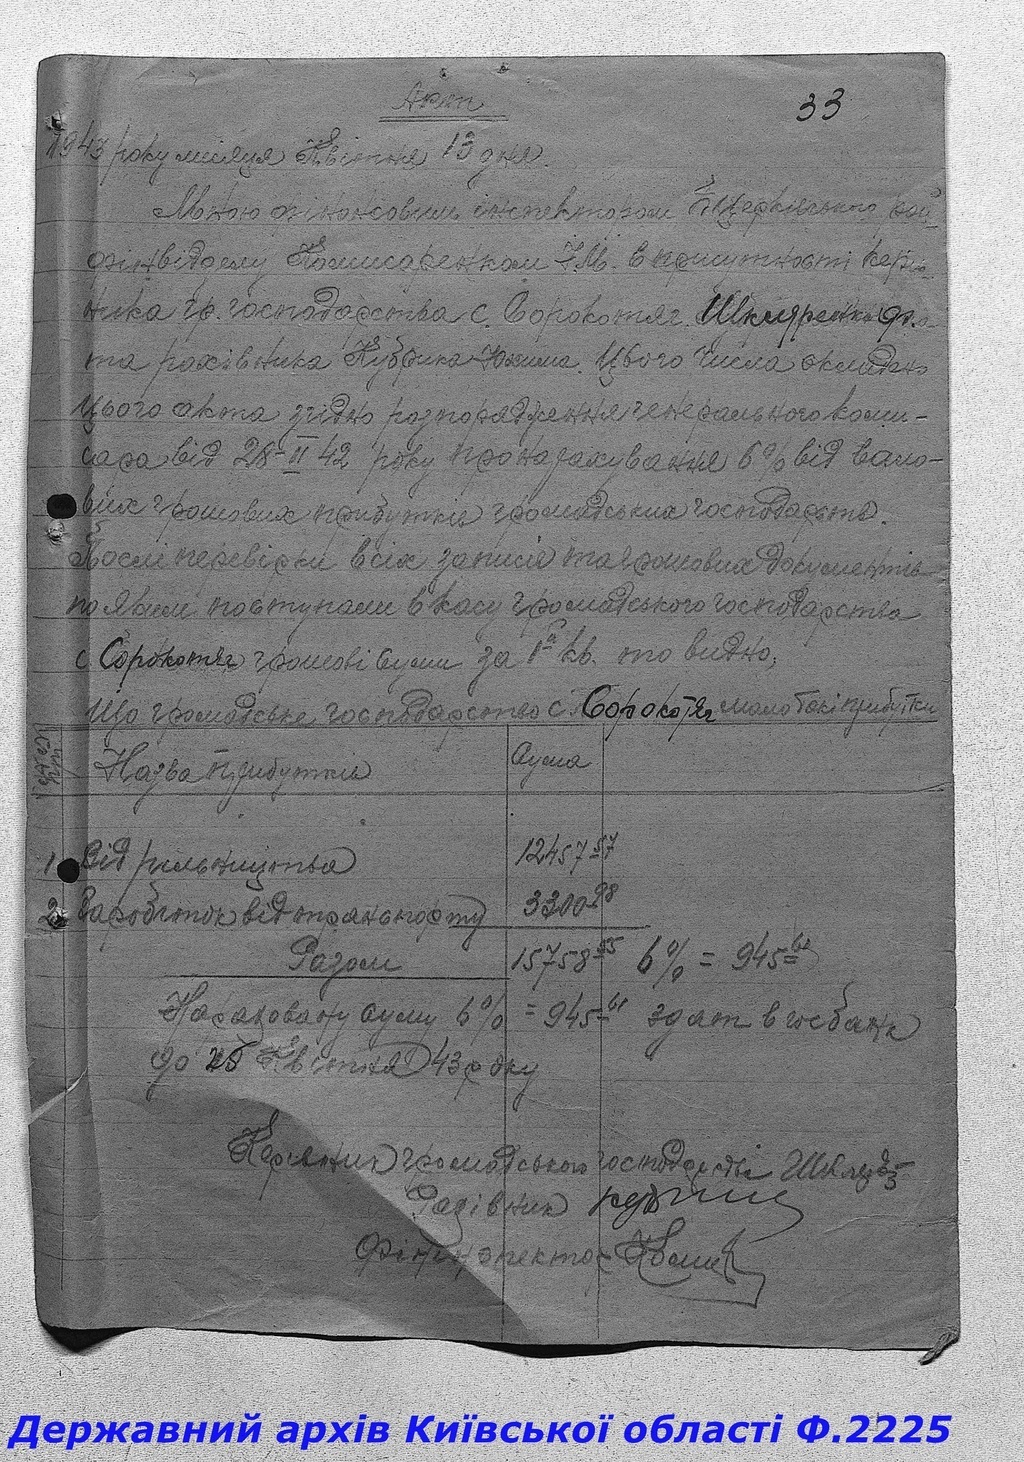 Акт
33
1943 року місяця Квітня 13 дня.
Мною фінансовим інспектором Б.Церківського рай
фінвідділу Комисаренком І.М. в присутності керів
ника гр. господарства с. Сорокотяг. Шкляренка
та рахівника Кубрика Юхима. Цього числа склали
цього акта згідно розпорядження генерального коми-
сара від 28-II 42 року про нарахування 6% від вало-
вих грошових прибутків громадських господарств.
Послі перевірки всіх записів та грошових документів
по яким поступали в касу громадського господарства
с. Сорокотяг грошові суми за 1й кв. то видно,
Що громадське господарство с. Сорокотяг мало такі прибутки
Назва прибутків Сума
1 Від рільництва 12457-57
2 Заробіток від транспорту 3300-98
Разом 15758-55 6% = 945-61
Нараховану суму 6% = 945-61 здати в госбанк
до 25 Квітня 43 року
Керівник громадського господарства
Рахівник
Фінінспектор
Державний архів Київської області Ф.2225